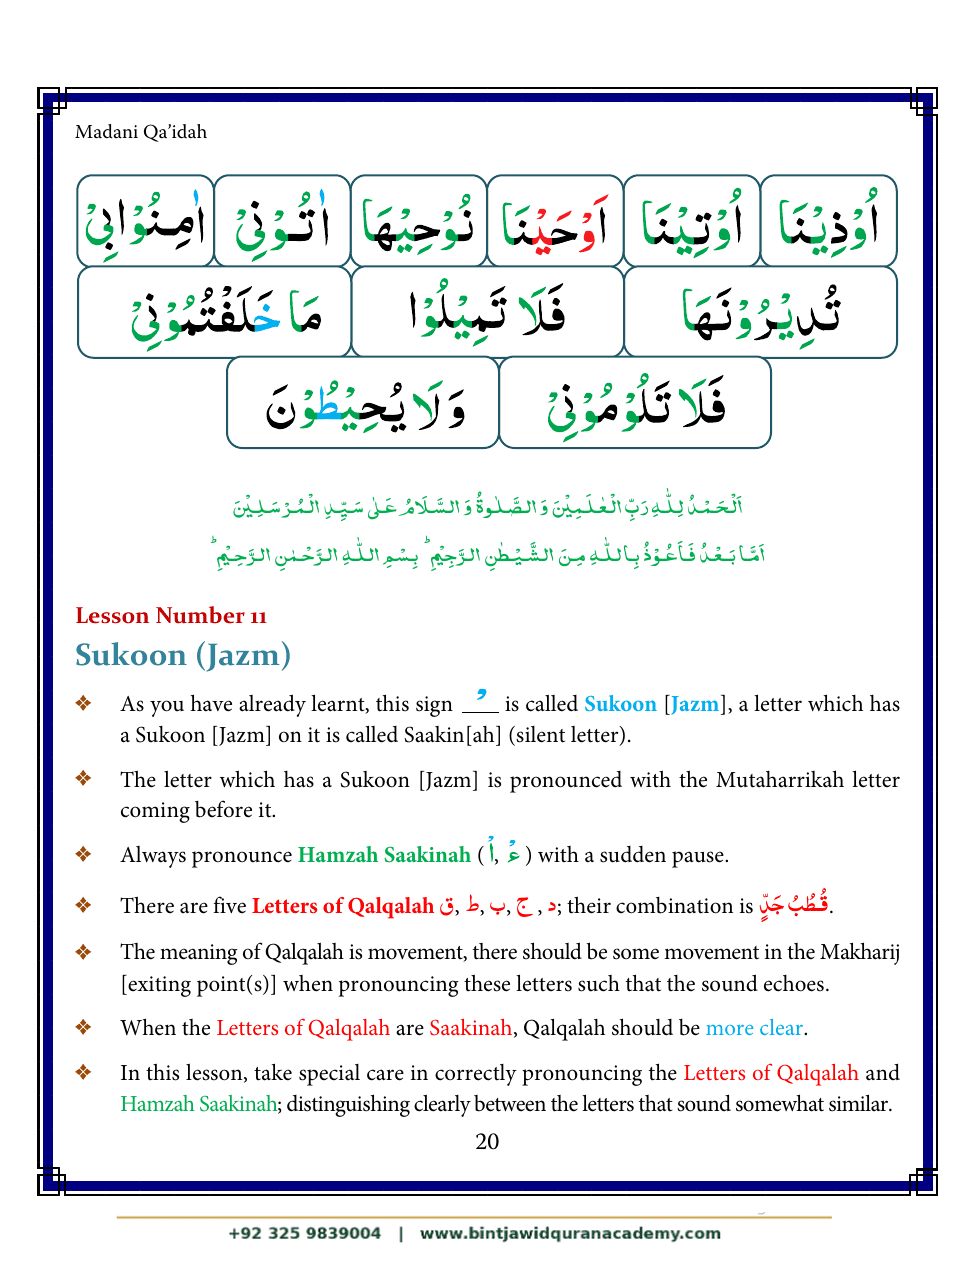 Madani Qa’idah
اُوْذِيْنَا اُوْتِيْنَا اَوْحَيْنَا نُوْحِيْهَا اٰتُوْنِيْ اٰمِنُوْابِيْ
تُدِيْرُوْنَهَا فَلَا تَمِيْلُوْا مَا خَلَفْتُمُوْنِيْ
فَلَا تَلُوْمُوْنِيْ وَلَا يُحِيْطُوْنَ
اَلْحَمْدُ لِلّٰهِ رَبِّ الْعٰلَمِيْنَ وَ الصَّلٰوةُ وَ السَّلَامُ عَلٰى سَيِّدِ الْمُرْسَلِيْنَ
اَمَّا بَعْدُ فَاَعُوْذُ بِاللّٰهِ مِنَ الشَّيْطٰنِ الرَّجِيْمِ ؕ بِسْمِ اللّٰهِ الرَّحْمٰنِ الرَّحِيْمِ ؕ
Lesson Number 11
Sukoon (Jazm)
❖ As you have already learnt, this sign ــْـ is called Sukoon [Jazm], a letter which has
a Sukoon [Jazm] on it is called Saakin[ah] (silent letter).
❖ The letter which has a Sukoon [Jazm] is pronounced with the Mutaharrikah letter
coming before it.
❖ Always pronounce Hamzah Saakinah ( اْ, ءْ ) with a sudden pause.
❖ There are five Letters of Qalqalah ق, ط, ب, ج , د; their combination is قُطْبُ جَدٍّ.
❖ The meaning of Qalqalah is movement, there should be some movement in the Makharij
[exiting point(s)] when pronouncing these letters such that the sound echoes.
❖ When the Letters of Qalqalah are Saakinah, Qalqalah should be more clear.
❖ In this lesson, take special care in correctly pronouncing the Letters of Qalqalah and
Hamzah Saakinah; distinguishing clearly between the letters that sound somewhat similar.
20
+92 325 9839004 | www.bintjawidquranacademy.com